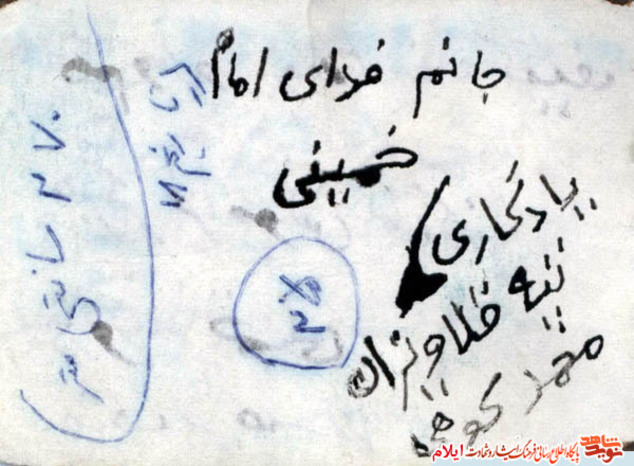 جانم فدای امام
خمینی
یادگاری
تپه قلاویزان
محمد کوهی
سانتی متر
نوید شاهد
پایگاه اطلاع رسانی فرهنگ ایثار و شهادت ایلام